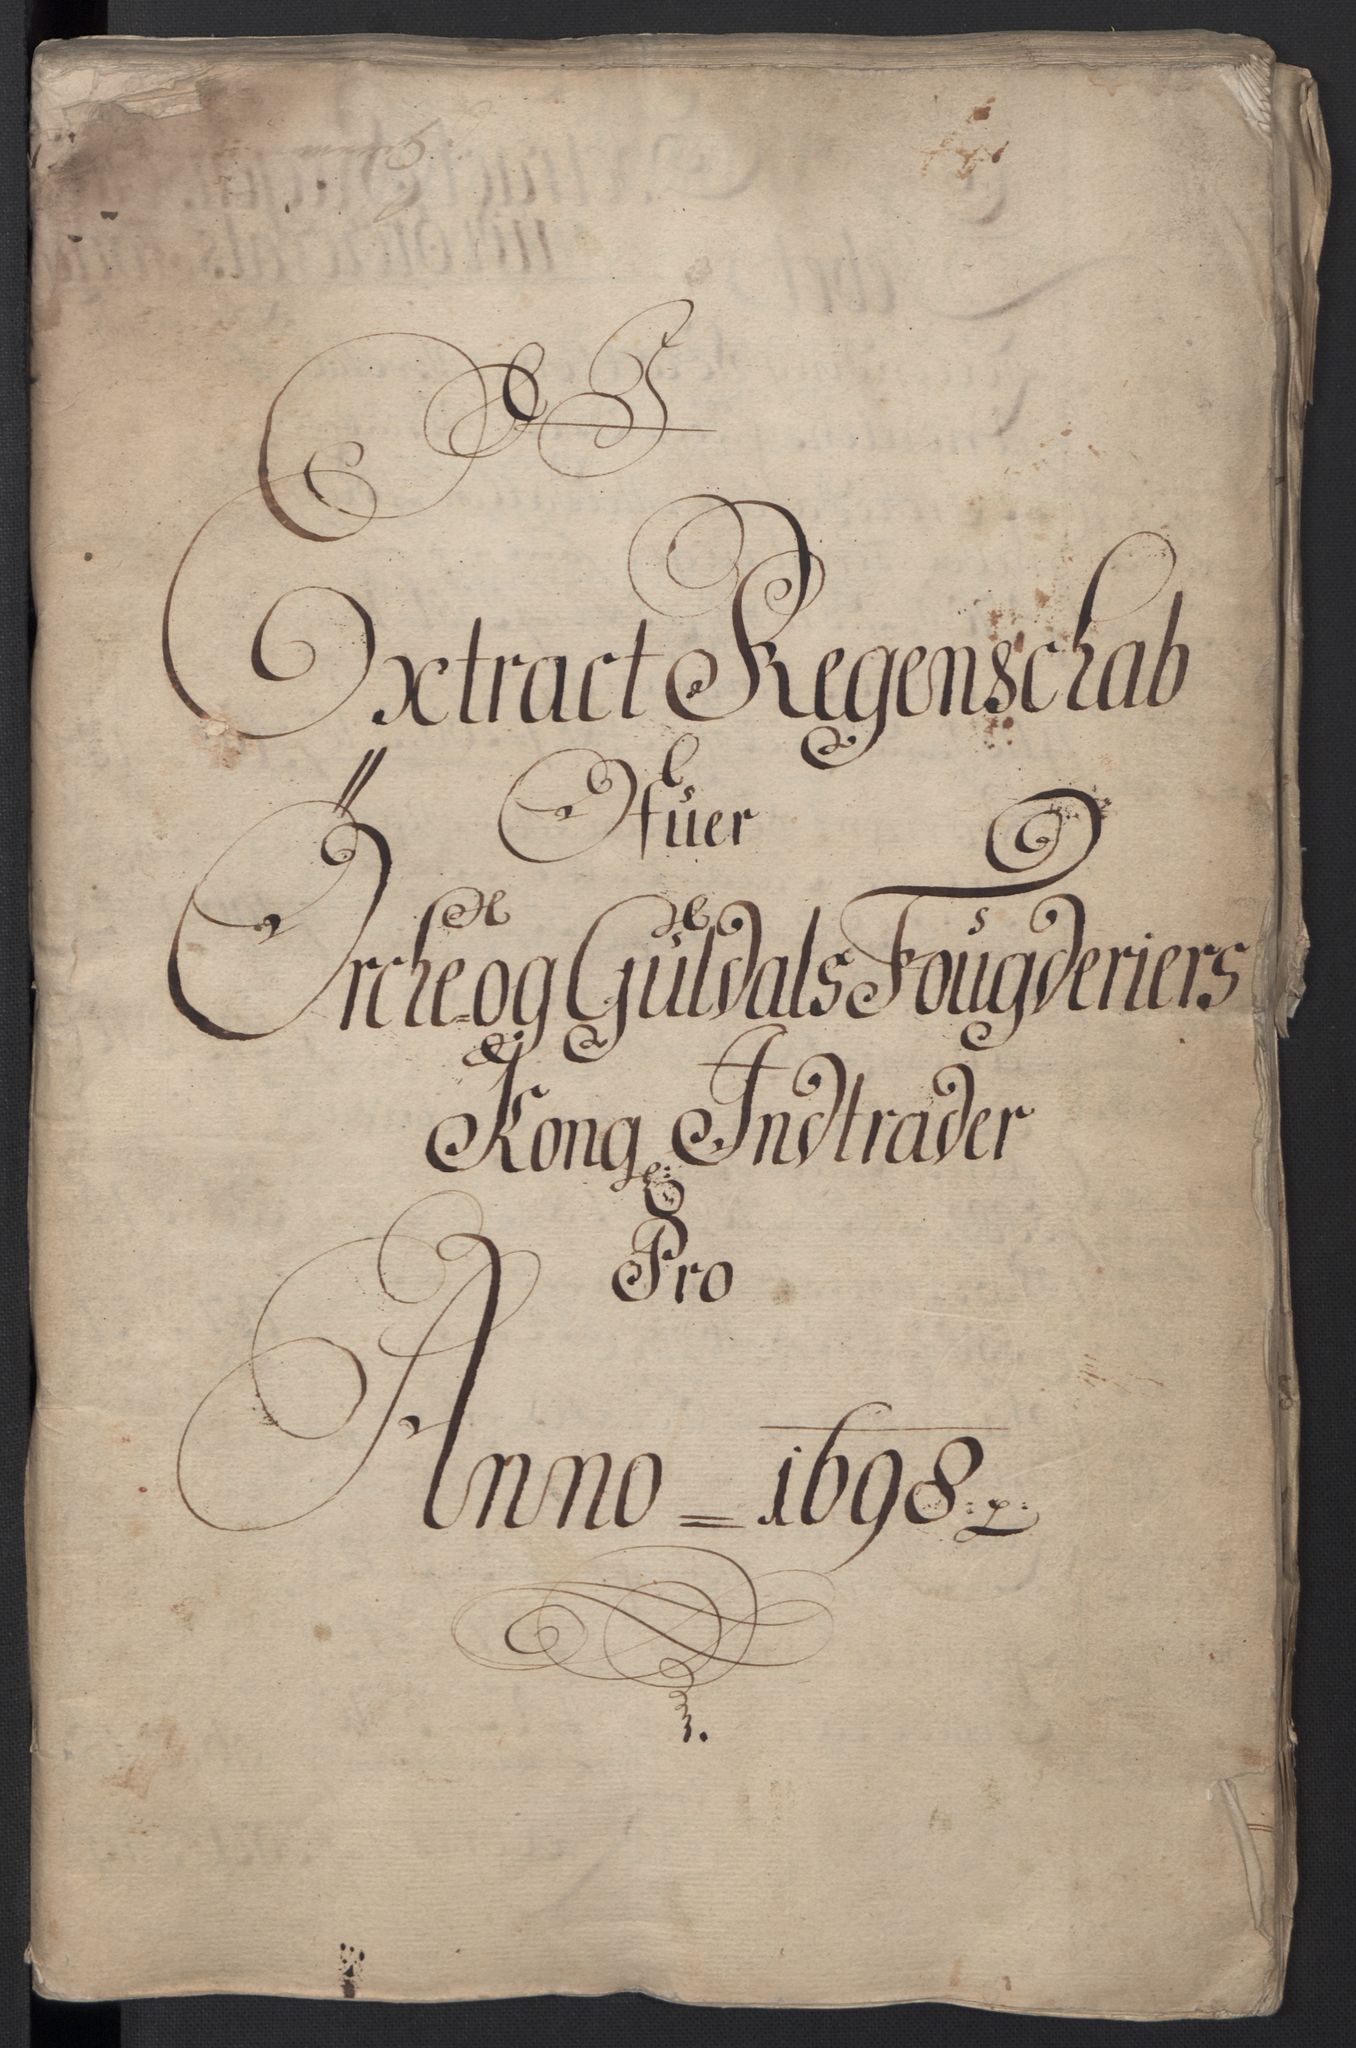 Extract Regenschab
Ofuer
Örche=og Guldals Fougderiers
Kong: Indtrader
Pro
Anno = 1698